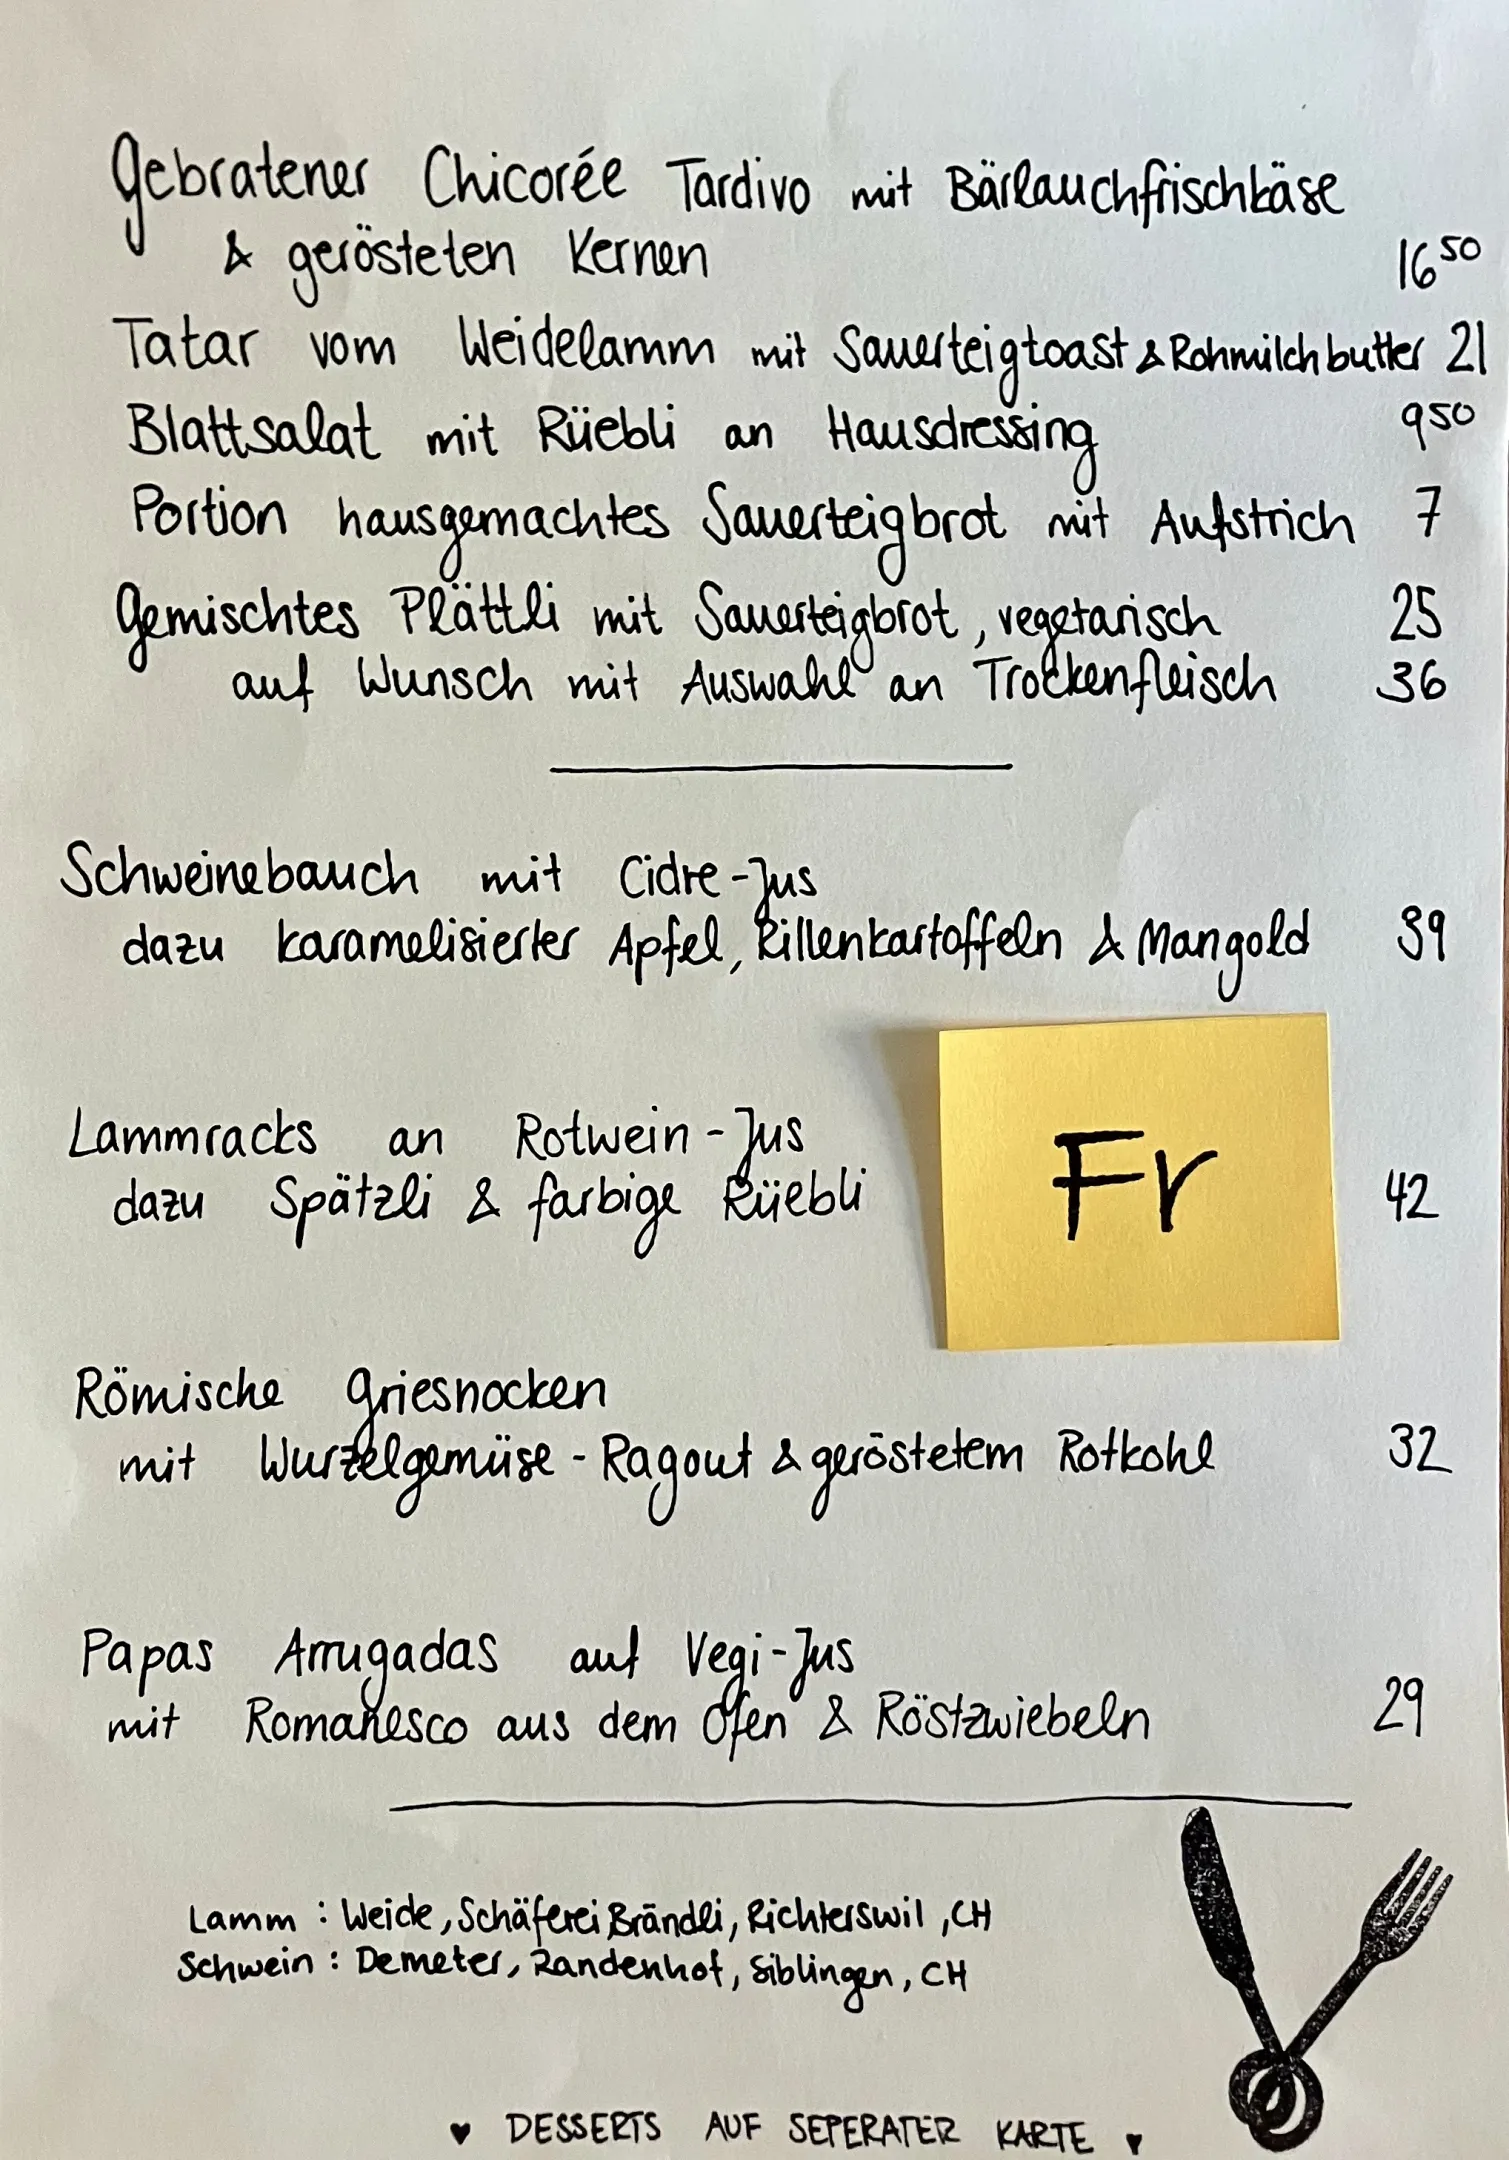 Gebratener Chicorée Tardivo mit Bärlauchfrischkäse
& gerösteten Kernen 16 50
Tatar vom Weidelamm mit Sauerteigtoast & Rohmilchbutter 21
Blattsalat mit Rüebli an Hausdressing 9 50
Portion hausgemachtes Sauerteigbrot mit Aufstrich 7
Gemischtes Plättli mit Sauerteigbrot, vegetarisch 25
auf Wunsch mit Auswahl an Trockenfleisch 36
Schweinebauch mit Cidre-Jus
dazu karamelisierter Apfel, Rillenkartoffeln & Mangold 39
Lammracks an Rotwein-Jus
dazu Spätzli & farbige Rüebli 42
Fr
Römische Griesnocken
mit Wurzelgemüse-Ragout & geröstetem Rotkohl 32
Papas Arrugadas auf Vegi-Jus
mit Romanesco aus dem Ofen & Röstzwiebeln 29
Lamm : Weide, Schäferei Brändli, Richterswil, CH
Schwein : Demeter, Randenhof, Siblingen, CH
♥ DESSERTS AUF SEPERATER KARTE ♥